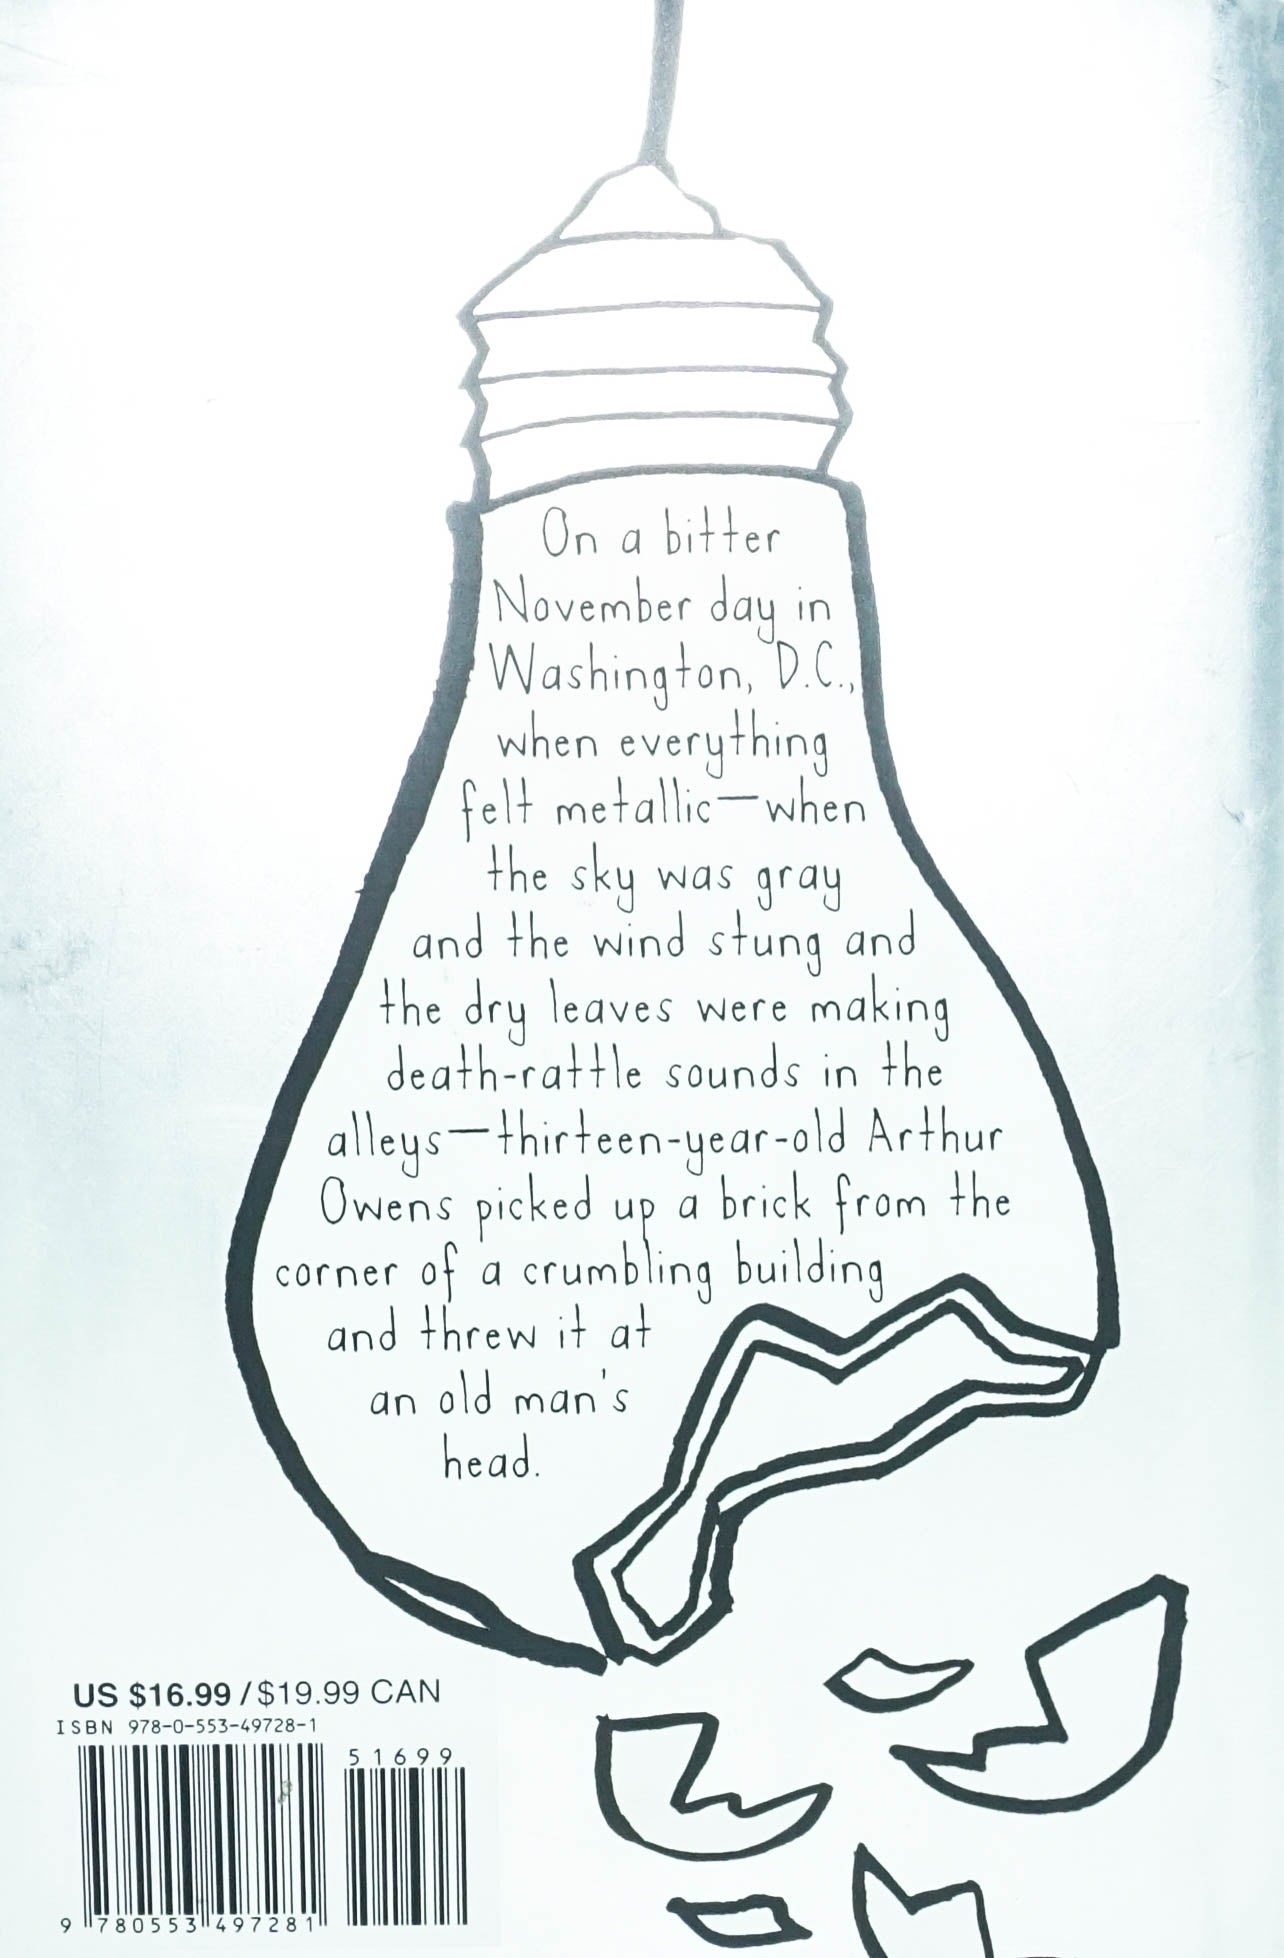 On a bitter
November day in
Washington, D.C.,
when everything
felt metallic—when
the sky was gray
and the wind stung and
the dry leaves were making
death-rattle sounds in the
alleys—thirteen-year-old Arthur
Owens picked up a brick from the
corner of a crumbling building
and threw it at
an old man's
head.
US $16.99 / $19.99 CAN
ISBN 978-0-553-49728-1
51699
9 780553 497281